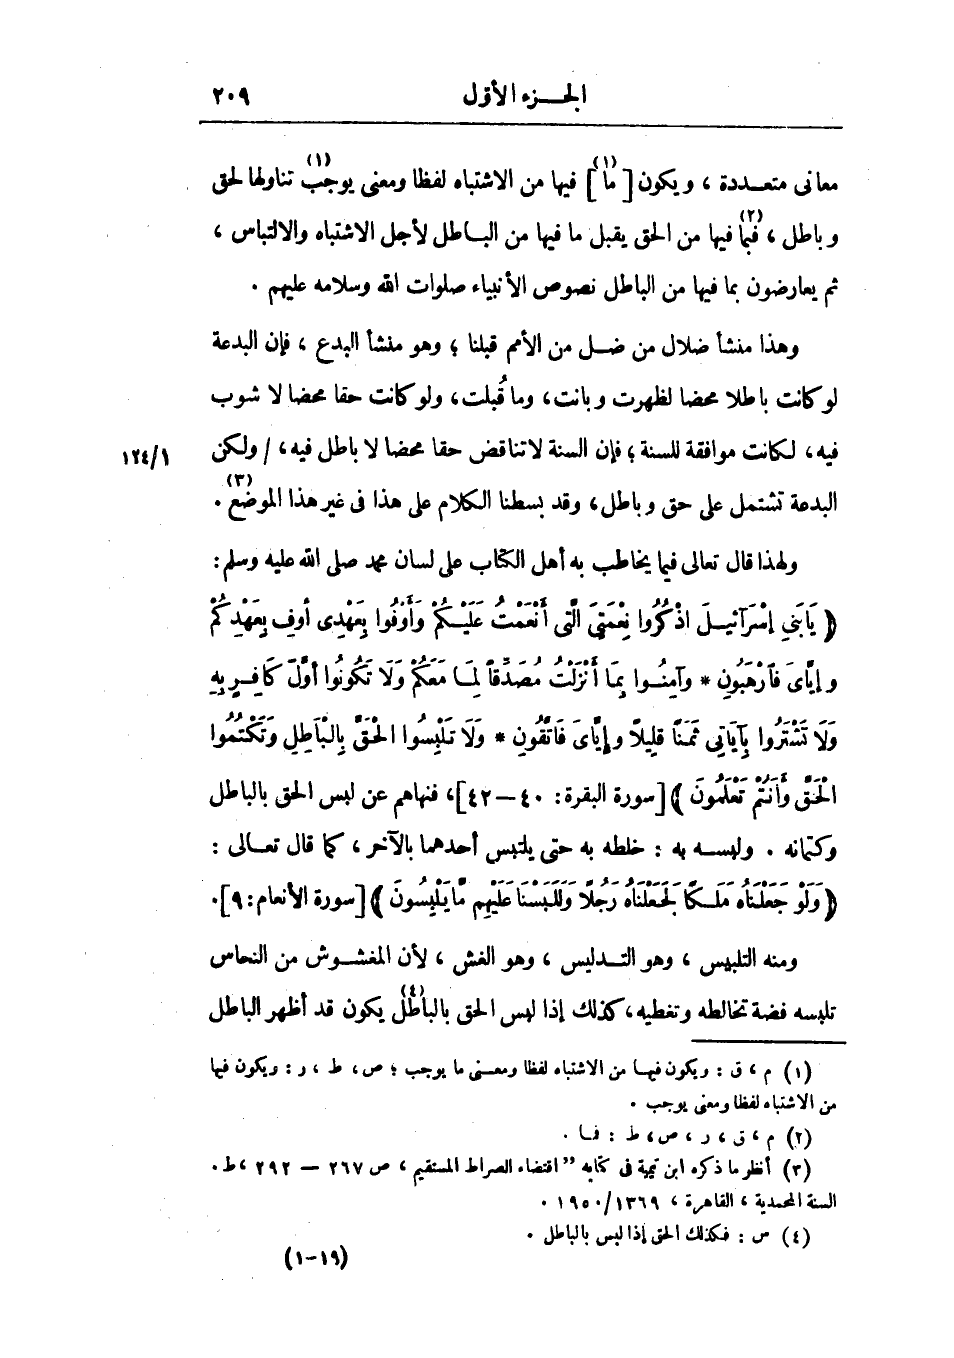 الجـــزء الأول ٢٠٩
معانى متعـــددة ، ويكون [ ما ](١) فيها من الاشتباه لفظا ومعنى يوجب(١) تناولها لحق
وباطل ، فبما(٢) فيها من الحق يقبل ما فيها من البـاطل لأجل الاشتباه والالتباس ،
ثم يعارضون بما فيها من الباطل نصوص الأنبياء صلوات الله وسلامه عليهم .
وهذا منشأ ضلال من ضـل من الأمم قبلنا ؛ وهو منشأ البدع ، فإن البدعة
لو كانت باطلا محضا لظهرت وبانت، وما قُبلت، ولو كانت حقا محضا لا شوب
فيه، لكانت موافقة للسنة ؛ فإن السنة لا تناقض حقا محضا لا باطل فيه، / ولكن ١٢٤/١
البدعة تشتمل على حق وباطل، وقد بسطنا الكلام على هذا فى غير هذا الموضع(٣) .
ولهذا قال تعالى فيما يخاطب به أهل الكتاب على لسان محمد صلى الله عليه وسلم :
﴿ يَابَنِي إِسْرَآئِيـلَ اذْكُرُوا نِعْمَتِيَ الَّتِي أَنْعَمْتُ عَلَيْـكُمْ وَأَوْفُوا بِعَهْدِى أُوفِ بِعَهْدِكُمْ
وإِيَّاىَ فَآرْهَبُونِ * وآمِنُــوا بِمَا أَنْزَلْتُ مُصَدِّقاً لِمَـا مَعَكُمْ وَلَا تَكُونُوا أَوَّلَ كَافِـرٍ بِهِ
وَلَا تَشْتَرُوا بِآيَاتِي ثَمَنًا قَلِيلًا وإِيَّاىَ فَاتَّقُونِ * وَلَا تَلْبِسُوا الْحَقَّ بِالْبَاطِلِ وَتَكْتُمُوا
الْحَقَّ وَأَنْتُمْ تَعْلَمُونَ ﴾ [سورة البقرة: ٤٠ – ٤٢]، فنهاهم عن لبس الحق بالباطل
وكتمانه . ولبســه به : خلطه به حتى يلتبس أحدهما بالآخر ، كما قال تعـالى :
﴿ وَلَوْ جَعَلْنَاهُ مَلَـكًا لَجَعَلْنَاهُ رَجُلًا وَلَلَبَسْنَا عَلَيْهِم مَّا يَلْبِسُونَ ﴾ [سورة الأنعام: ٩].
ومنه التلبيس ، وهو التــدليس ، وهو الغش ، لأن المغشــوش من النحاس
تلبسه فضة تخالطه وتغطيه، كذلك إذا لبس الحق بالباطل(٤) يكون قد أظهر الباطل
(١) م ، ق : ويكون فيهـا من الاشتباه لفظا ومعــنى ما يوجب ؛ ص، ط ، ر : ويكون فيها
من الاشتباه لفظا ومعنى يوجب .
(٢) م ، ق ، ر ، ص، ط : فما .
(٣) أنظر ما ذكره ابن تيمية فى كتابه " اقتضاء الصراط المستقيم ، ص ٢٦٧ – ٢٩٢ ، ط.
السنة المحمدية ، القاهرة ، ١٩٥٠/١٣٦٩ .
(٤) س : فكذلك الحق إذا لبس بالباطل .
(١-١٩)